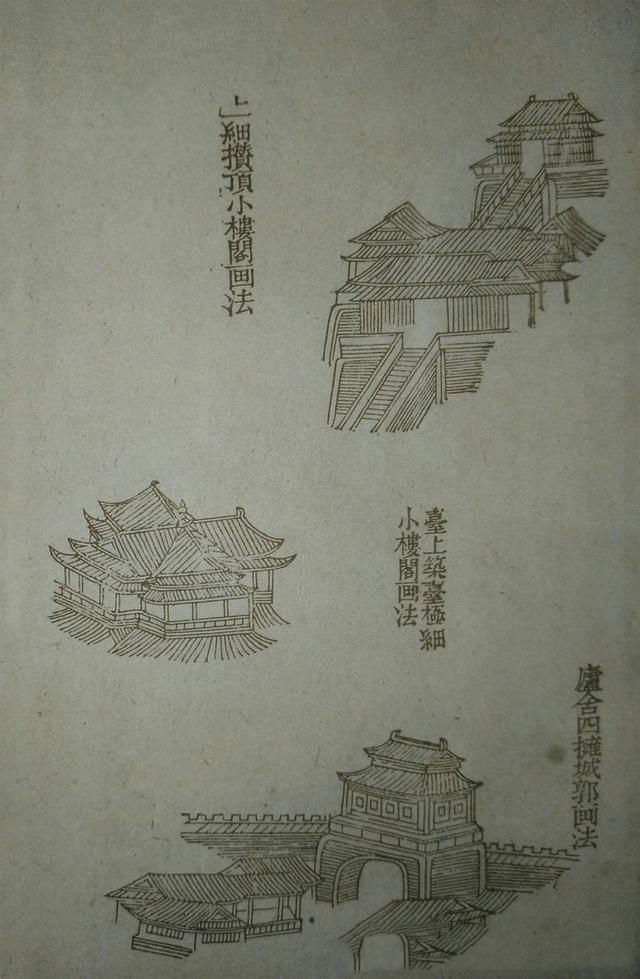 細攢頂小樓閣画法
臺上築臺極細
小樓閣画法
廬舍四擁城郭画法